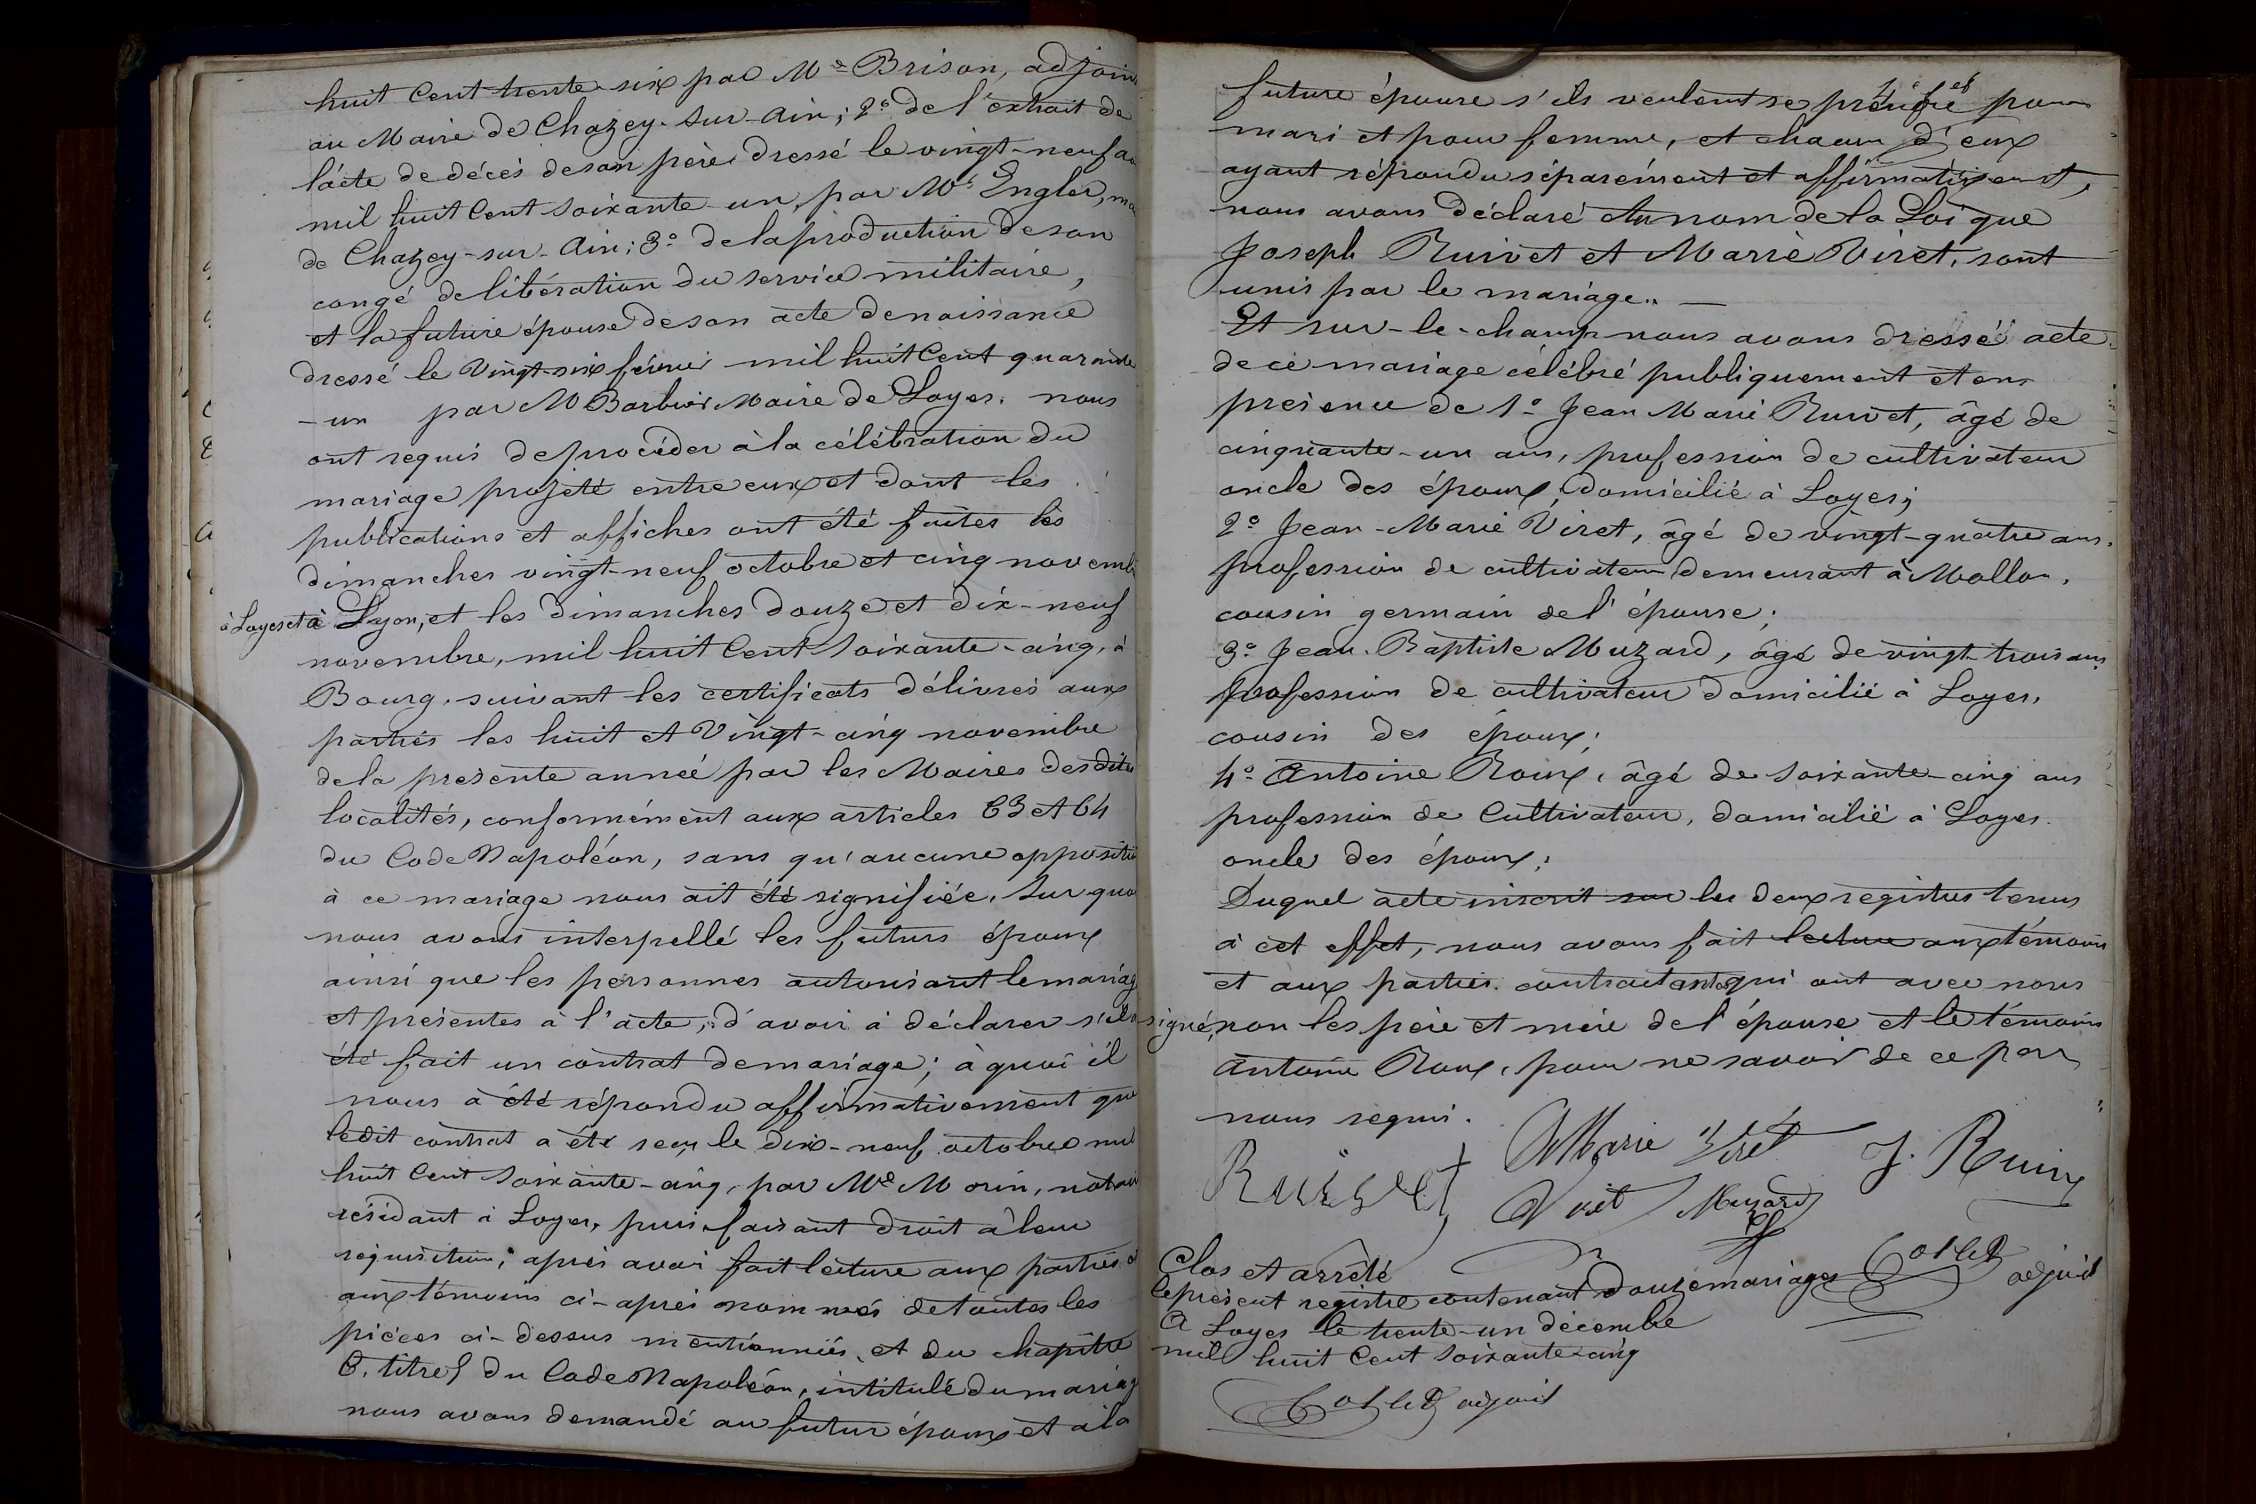 huit cent trente six par Mr Brison, adjoin
au Maire de Chazey-sur-Ain; 2º de l'extrait de
l'acte de décès de son père dressé le vingt-neuf ao
mil huit cent soixante un, par Mr Engler, ma
de Chazey-sur-Ain; 3º de la production de son
congé de libération du service militaire,
et la future épouse de son acte de naissance
dressé le vingt-six février mil huit cent quarante
-un par M Barbier Maire de Loyes. nous
ont requis de procéder à la célébration du
mariage projeté entre eux et dont les
publications et affiches ont été faites les
dimanches vingt-neuf octobre et cinq novemb
à Loyes et à Lyon, et les dimanches douze et dix-neuf
novembre, mil huit cent soixante-cinq, à
Bourg, suivant les certificats délivrés aux
parties les huit et vingt-cinq novembre
de la présente année par les Maires desdites
localités, conformément aux articles 63 et 64
du Code Napoléon, sans qu'aucune oppositi
à ce mariage nous ait été signifiée. Sur quo
nous avons interpellé les futurs époux
ainsi que les personnes autorisant le mariag
et présentes à l'acte, d'avoir à déclarer s'il a
été fait un contrat de mariage; à quoi il
nous a été répondu affirmativement que
ledit contrat a été reçu le dix-neuf octobre mil
huit cent soixante-cinq, par Me Morin, notai
résidant à Loyes, puis faisant droit à leur
réquisition; après avoir fait lecture aux parties et
aux témoins ci-après nommés de toutes les
pièces ci-dessus mentionnées, et du chapitre
6, titre 5 du Code Napoléon, intitulé du mariag
nous avons demandé au futur époux et à la
future épouse s'ils veulent se prendre pour
mari et pour femme, et chacun d'eux
ayant répondu séparément et affirmativement,
nous avons déclaré au nom de la Loi que
Joseph Ruivet et Marie Viret, sont
unis par le mariage.. —
Et sur-le-champ nous avons dressé acte
de ce mariage célébré publiquement et en
présence de 1º Jean Marie Ruivet, âgé de
cinquante-un ans, profession de cultivateur
oncle des époux, domicilié à Loyes;
2º Jean-Marie Viret, âgé de vingt-quatre ans.
profession de cultivateur demeurant à Mollon,
cousin germain de l'épouse;
3º Jean-Baptiste Muzard, âgé de vingt-trois ans
profession de cultivateur domicilié à Loyes,
cousin des époux;
4º Antoine Roux, âgé de soixante-cinq ans
profession de Cultivateur, domicilié à Loyes.
oncle des époux;
Duquel acte inscrit sur les deux registres tenus
à cet effet, nous avons fait lecture aux témoins
et aux parties contractantes qui ont avec nous
signé, non les père et mère de l'épouse et le témoin
Antoine Roux, pour ne savoir de ce par
nous requis.
Ruivet Marie Viret J. Ruivet
Viret Muzard
Clos et arrêté
le présent registre contenant douze mariages adjoint
A Loyes le trente-un décembre
mil huit cent soixante-cinq
adjoint